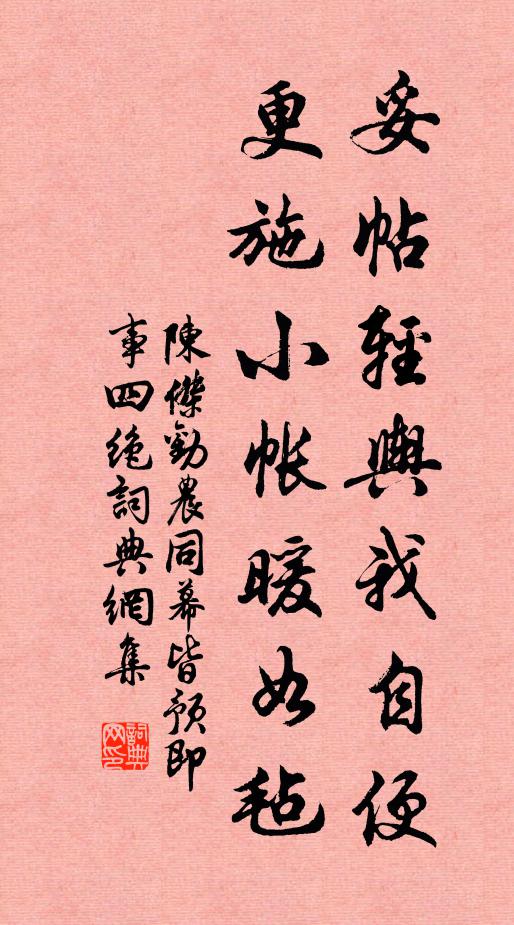 妥帖輕輿我自便
更施小帳暖如毡
陳傑勸農同幕皆預即
事四绝詞典網集
詞典网印